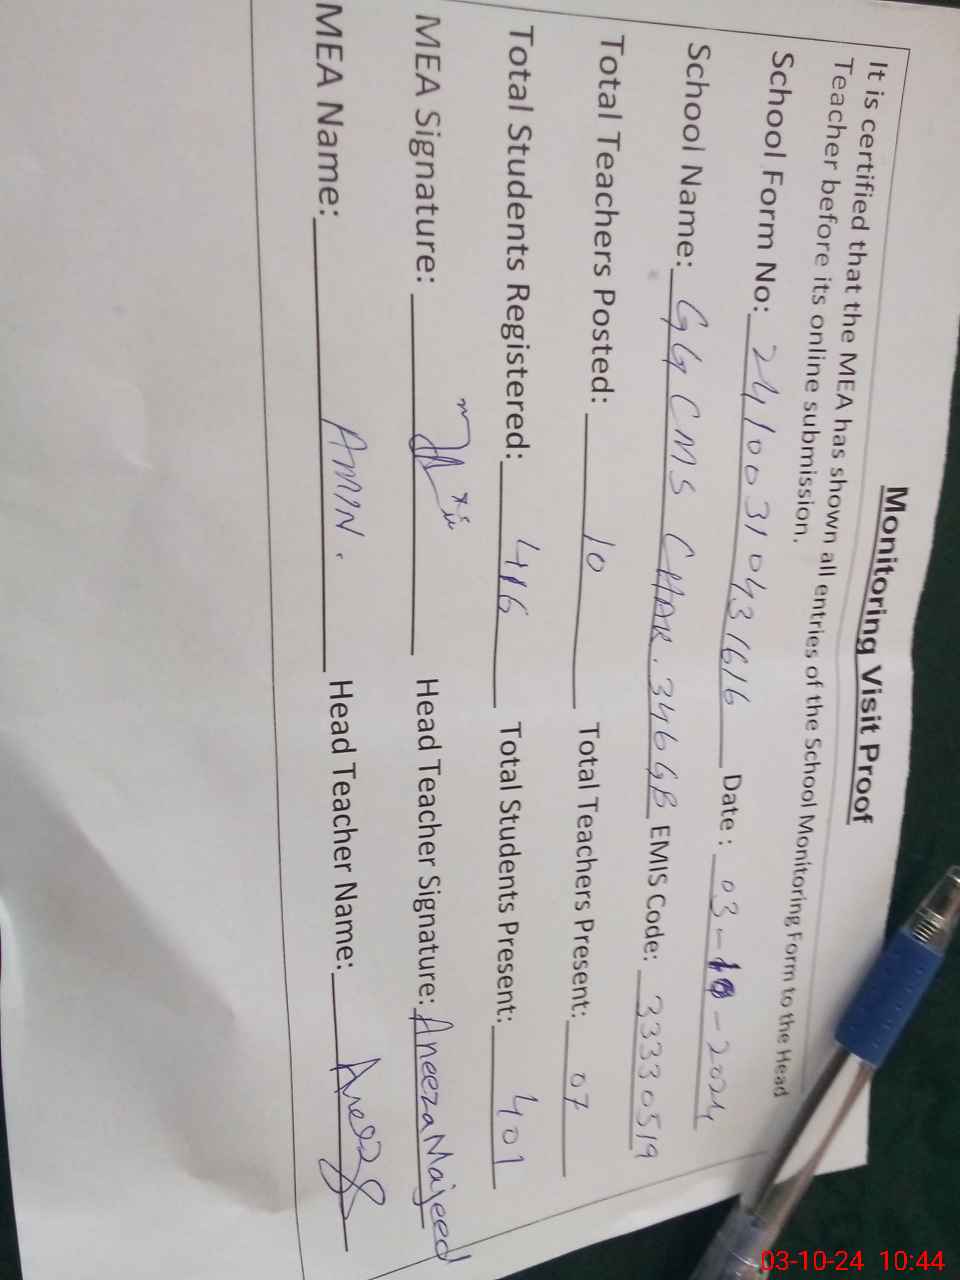 Monitoring Visit Proof
It is certified that the MEA has shown all entries of the School Monitoring Form to the Head
Teacher before its online submission.
School Form No: 2410031043 1616 Date : 03-10-2024
School Name: GGCMS CHAK.346GB EMIS Code: 33330519
Total Teachers Posted: 10 Total Teachers Present: 07
Total Students Registered: 416 Total Students Present: 401
MEA Signature: Head Teacher Signature: Aneeza Majeed
MEA Name: AMIN. Head Teacher Name:
03-10-24 10:44